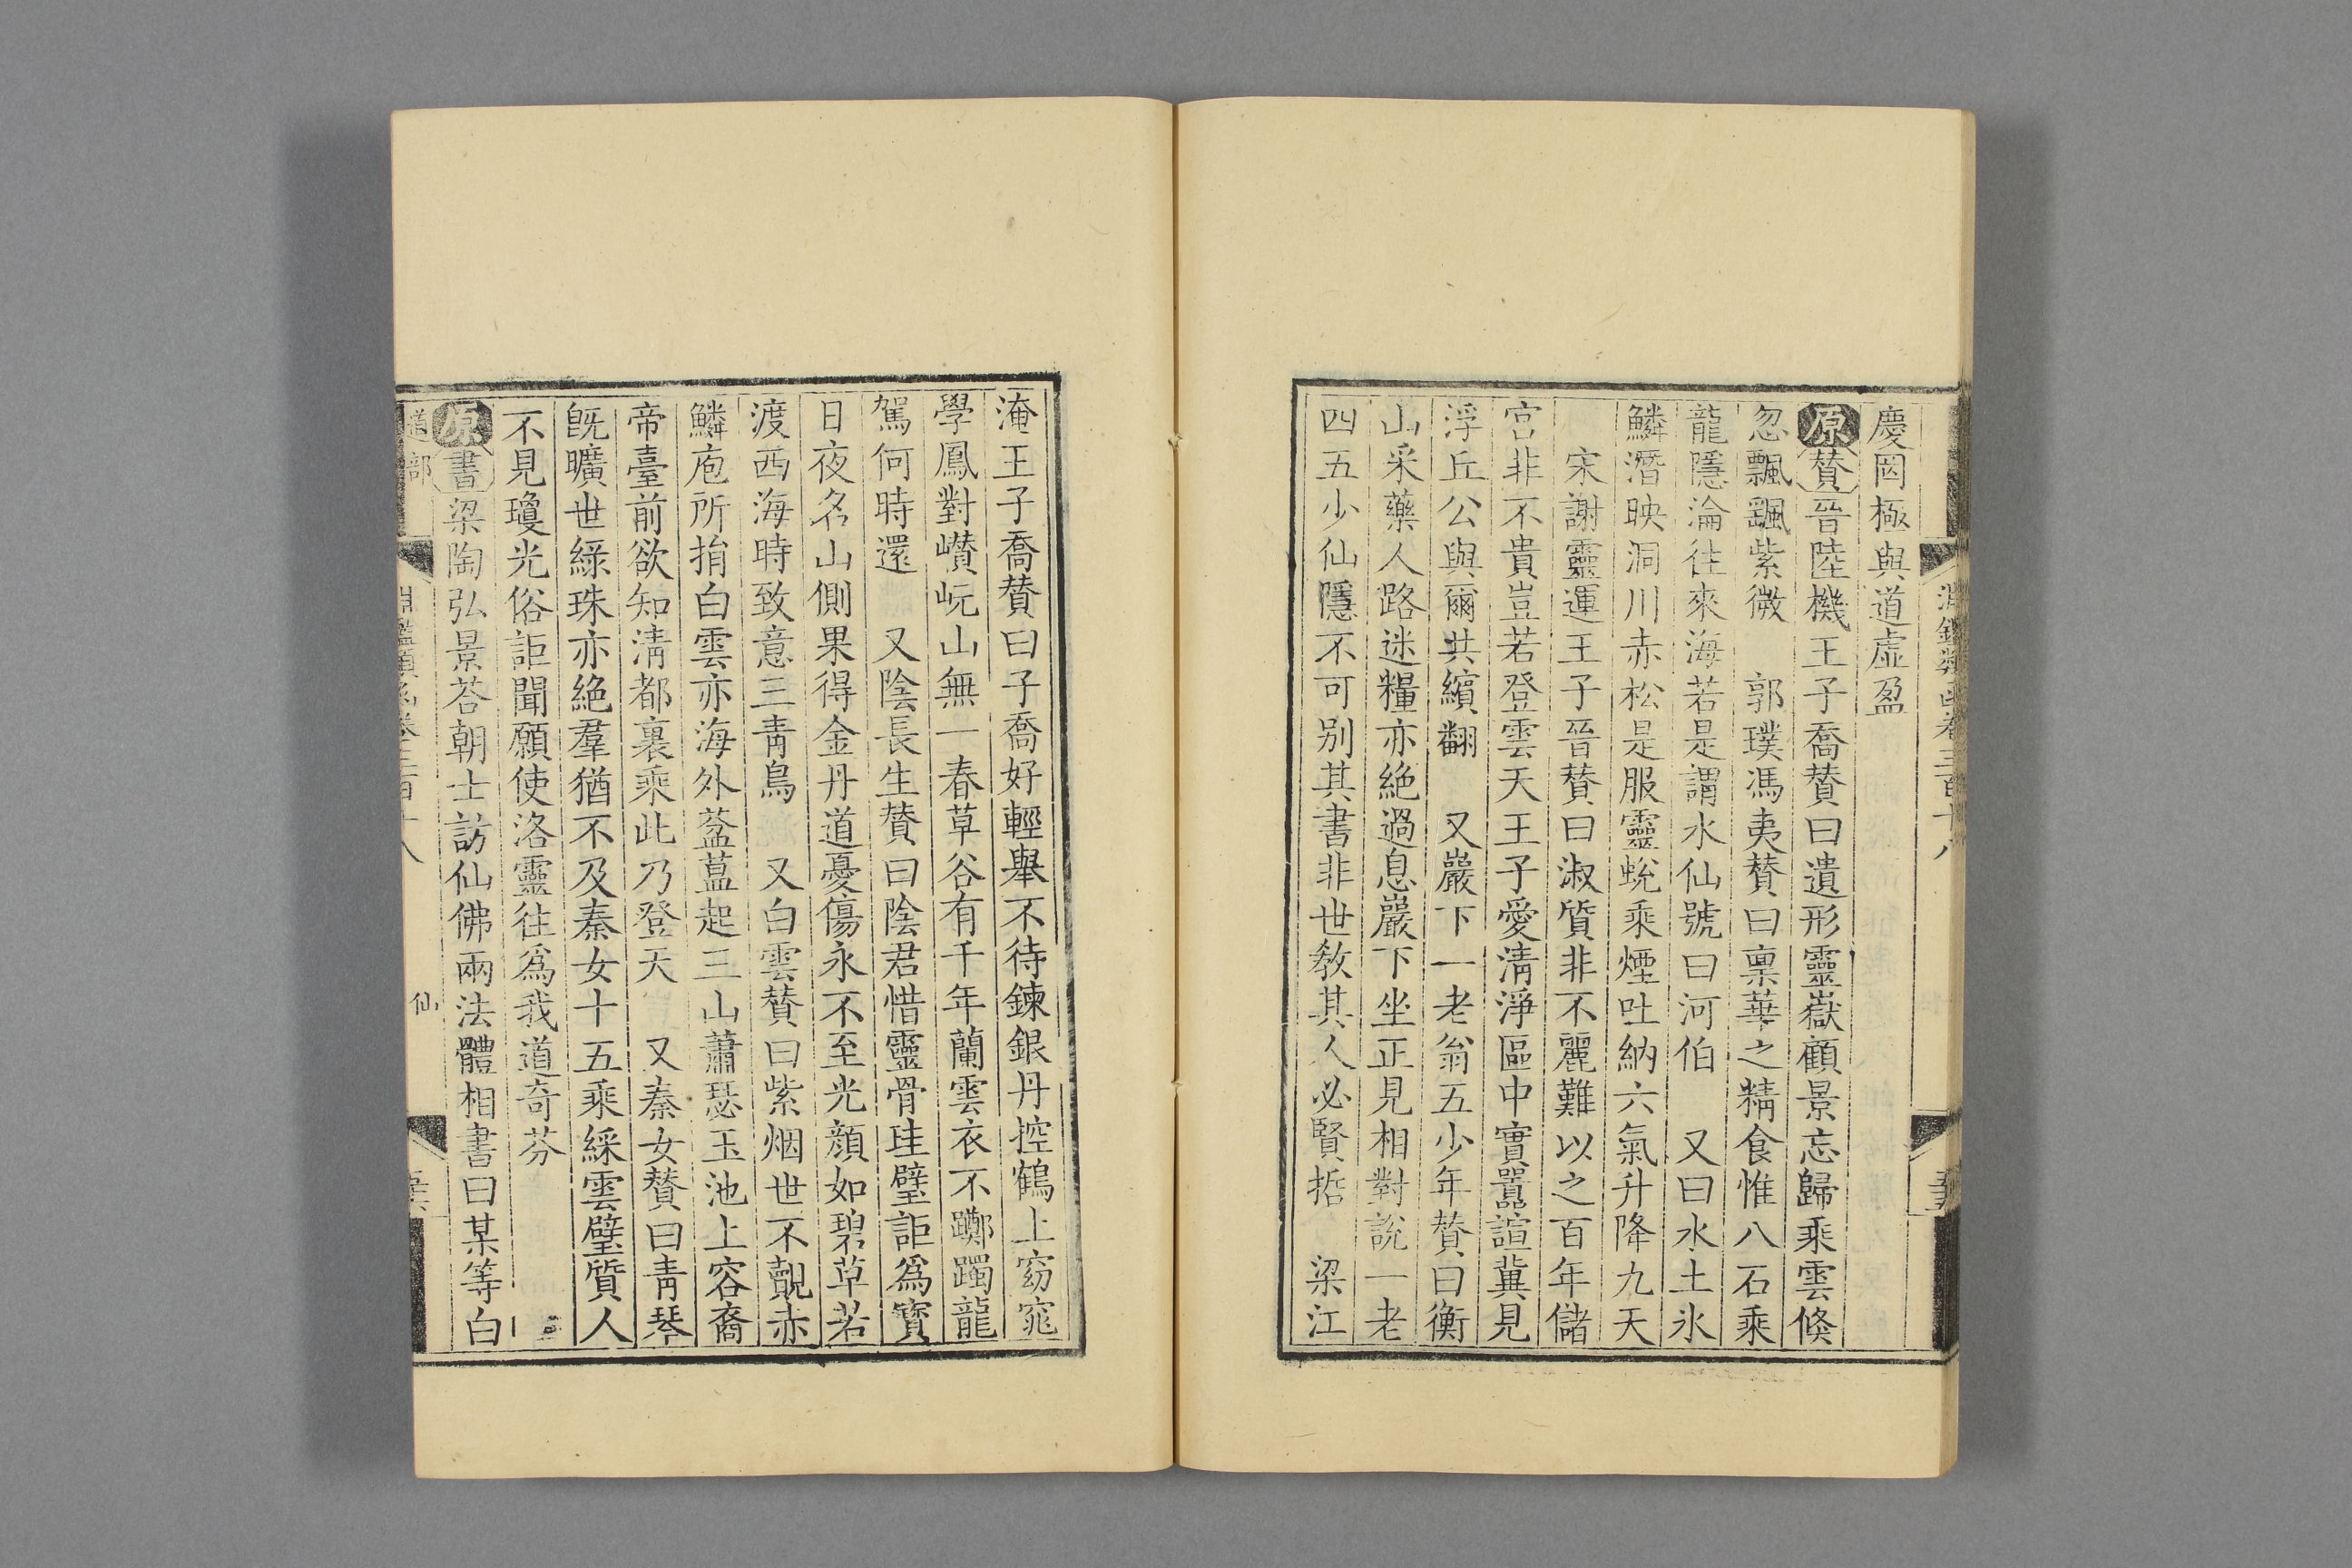 慶罔極與道虛盈
原贊晉陸機王子喬贊曰遺形靈嶽顧景忘歸乘雲倏
忽飄颻紫微　郭璞馮夷贊曰稟華之精食惟八石乘
龍隱淪往來海若是謂水仙號曰河伯　又曰水土氷
鱗潛映洞川赤松是服靈蛻乘煙吐納六氣升降九天
　宋謝靈運王子晉贊曰淑質非不麗難以之百年儲
宮非不貴豈若登雲天王子愛清淨區中實囂諠冀見
浮丘公與爾共繽翻　又巖下一老翁五少年贊曰衡
山采藥人路迷糧亦絶過息巖下坐正見相對說一老
四五少仙隱不可别其書非世敎其人必賢哲　梁江
淹王子喬贊曰子喬好輕舉不待鍊銀丹控鶴上窈窕
學鳳對巑岏山無一春草谷有千年蘭雲衣不躑躅龍
駕何時還　又陰長生贊曰陰君惜靈骨珪璧詎爲寶
日夜名山側果得金丹道憂傷永不至光顏如碧草若
渡西海時致意三青鳥　又白雲贊曰紫烟世不覿赤
鱗庖所捐白雲亦海外葢葢起三山蕭瑟玉池上容裔
帝臺前欲知清都裏乘此乃登天　又秦女贊曰青琴
旣曠世綠珠亦絶羣猶不及秦女十五乘綵雲璧質人
不見瓊光俗詎聞願使洛靈往爲我道奇芬
原書梁陶弘景荅朝士訪仙佛兩法體相書曰某等白
道部
仙